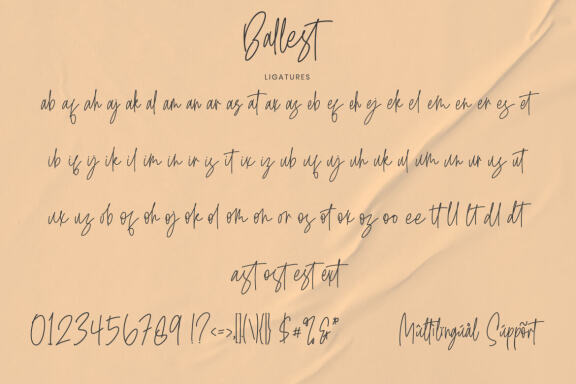 Ballest
LIGATURES
ab af ah aj ak al am an ar as at ax az eb ef eh ej ek el em en er es et
ib if ij ik il im in ir is it ix iz ub uf uj uh uk ul um un ur us ut
ux uz ob of oh oj ok ol om on or os ot ox oz oo ee tt ll lt dl dt
ast ost est ext
0123456789 !? <=> $ # % & *
Múltilingúãl Súppõrt